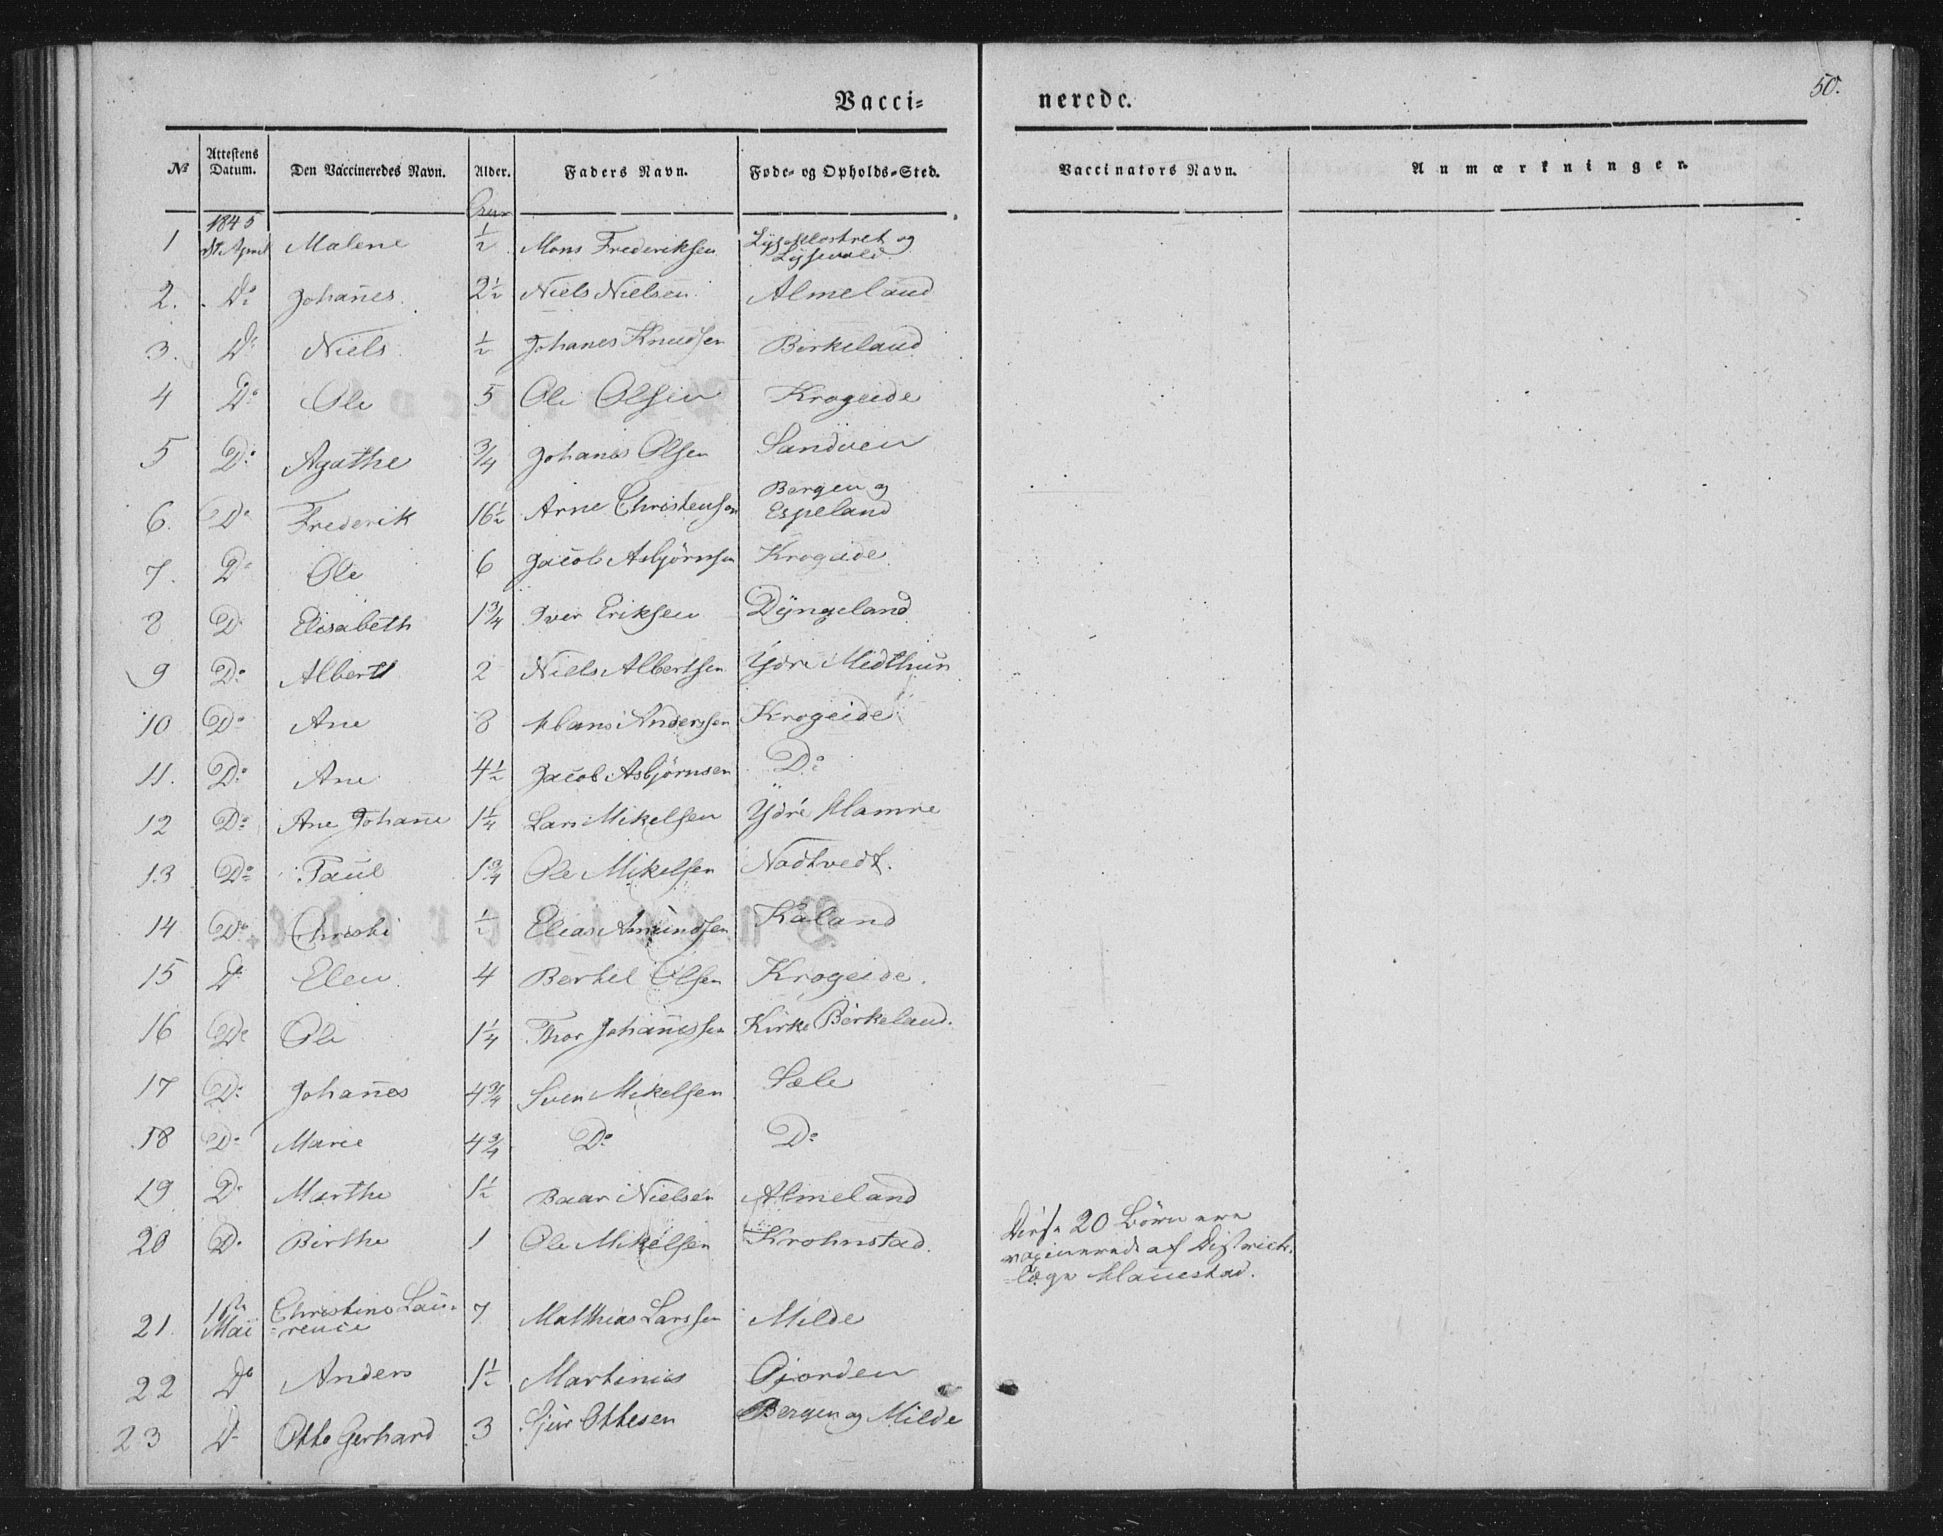 50.
Vacci= nerede.
No Attestens Datum. Den Vaccineredes Navn. Alder. Faders Navn. Føde- og Opholds-Sted. Vaccinators Navn. Anmærkninger.
1845
1 April Malene ½ Mons Frederiksen Lyseklostret og
2. Do Johan̄es 2½ Niels Nielsen Almeland
3. Do Niels ½ Johanes Knudsen Birkeland
4 Do Ole 5 Ole Olsen Krogeide
5 Do Agathe ¾ Johanes Olsen Sandven
Bergen og
6. Do Frederik 16½ Arne Christensen Espeland
7. Do Ole 6 Jacob Asbjørnsen Krogeide
8 Do Elisabeth 1¾ Iver Eriksen Dyngeland
9 Do Albert 2 Niels Albertsen Ydre Midthun
10 Do Ane 8 Hans Anderssen Krogeide
11. Do Ane 4½ Jacob Asbjørnsen Do
12 Do Ane Johan̄e 1¼ Lars Mikelsen Ydre Hamre
13 Do Paul 1¾ Ole Mikelsen Nadtvedt.
14 Do Christi ½ Elias Amundsen Kaland
15 Do Elen 4 Berhel Olsen Krogeide.
16 Do Ole 1¼ Thor Johan̄essen Kirke Birkeland.
17 Do Johan̄es 4¾ Sven Mikelsen Sæle
18 Do Marie 4¾ Do Do
19 Do Marthe 1½ Baar Nielsen Almeland
20 Do Birthe 1 Ole Mikelsen Krohnstad.
Disse 20 Børn ere
vaxinerede af District-
læge Han̄estad.
21. Mai Christine Lau- 7 Matthias Larssen Milde
=rence
22 Do Anders 1½ Martinius Fjorden
23 Do Otto Gerhard 3 Sjur Ottesen Bergen og Milde